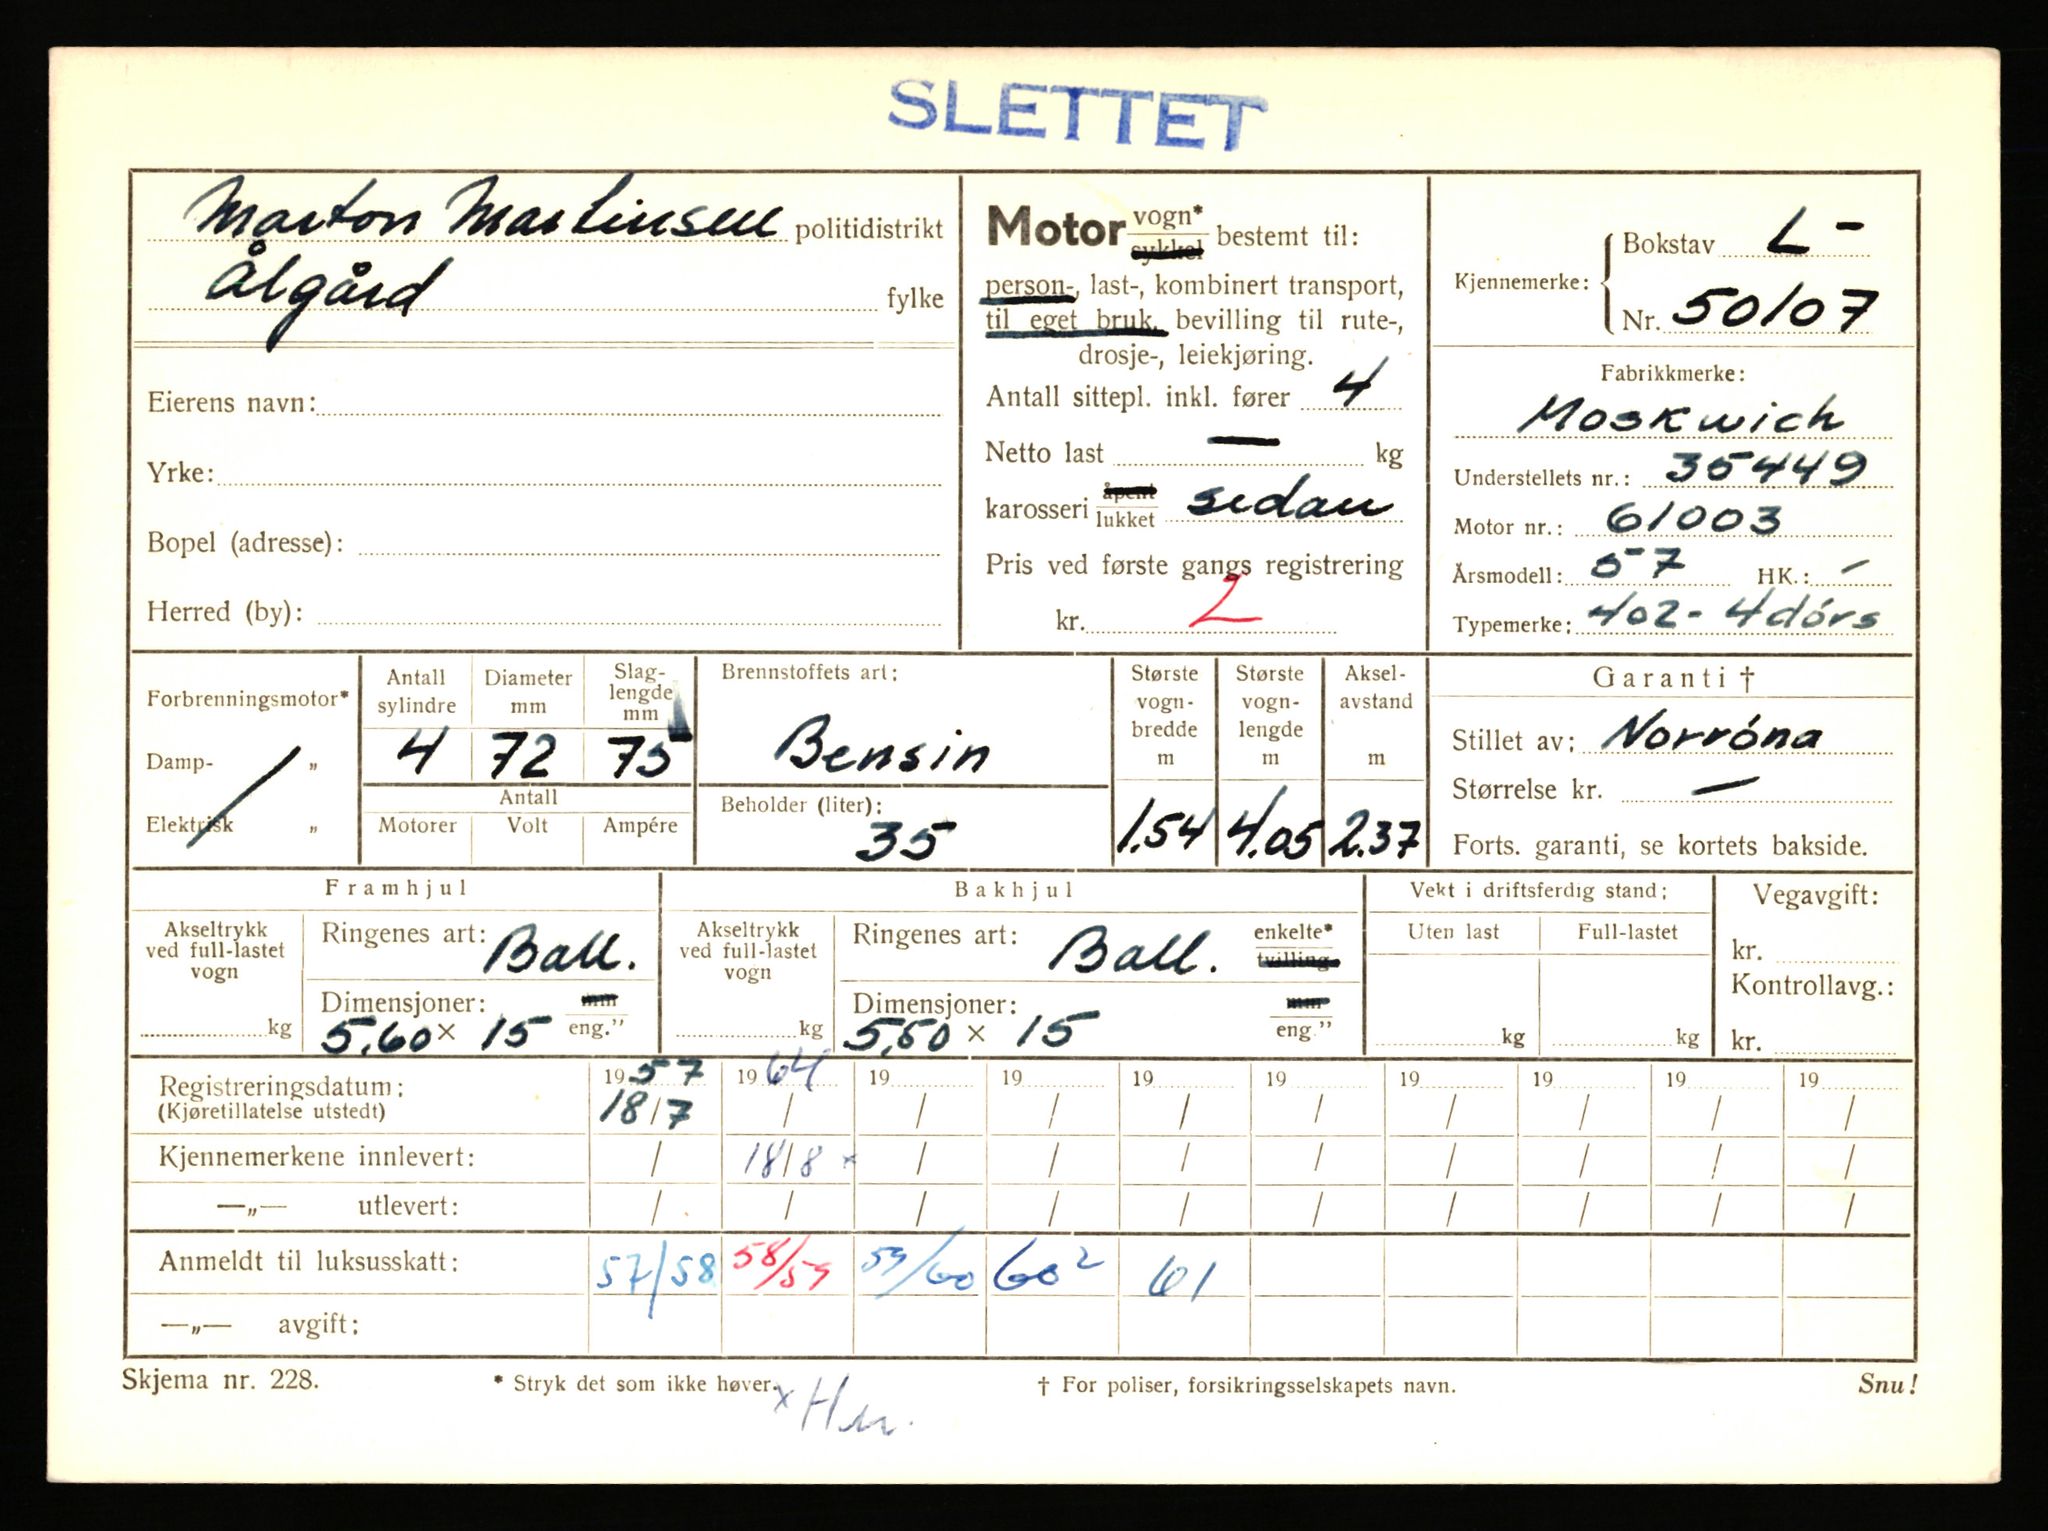 SLETTET
Marton Martinsen politidistrikt
Ålgård fylke
Eierens navn:
Yrke:
Bopel (adresse):
Herred (by):
Motor vogn* sykkel bestemt til:
person-, last-, kombinert transport,
til eget bruk, bevilling til rute-,
drosje-, leiekjøring.
Antall sittepl. inkl. fører 4
Netto last — kg
karosseri åpent lukket sedan
Pris ved første gangs registrering
kr. 2
Kjennemerke: Bokstav L-
Nr. 50107
Fabrikkmerke:
Moskwich
Understellets nr.: 35449
Motor nr.: 61003
Årsmodell: 57 HK.: -
Typemerke: 402- 4dørs
Forbrenningsmotor*
Damp- „
Elektrisk „
Antall sylindre
4
Diameter mm
72
Slag-lengde mm
75
Antall
Motorer Volt Ampére
Brennstoffets art:
Bensin
Beholder (liter):
35
Største vogn-bredde m
1.54
Største vogn-lengde m
4.05
Aksel-avstand m
2.37
Garanti †
Stillet av: Norröna
Størrelse kr. —
Forts. garanti, se kortets bakside.
Framhjul
Akseltrykk ved full-lastet vogn
kg
Ringenes art: Ball.
Dimensjoner: mm
5.60 x 15 eng."
Bakhjul
Akseltrykk ved full-lastet vogn
kg
Ringenes art: Ball. enkelte* tvilling
Dimensjoner: mm
5,60 x 15 eng."
Vekt i driftsferdig stand:
Uten last Full-lastet
kg kg
Vegavgift:
kr.
Kontrollavg.:
kr.
Registreringsdatum: 1957 1964 19 19 19 19 19 19 19 19
(Kjøretillatelse utstedt) 18/7 / / / / / / / / /
Kjennemerkene innlevert: / 18/8 x / / / / / / / /
—„— utlevert: / / / / / / / / / /
Anmeldt til luksusskatt: 57/58 58/59 59/60 60² 61
—„— avgift:
Skjema nr. 228. * Stryk det som ikke høver. † For poliser, forsikringsselskapets navn. Snu!